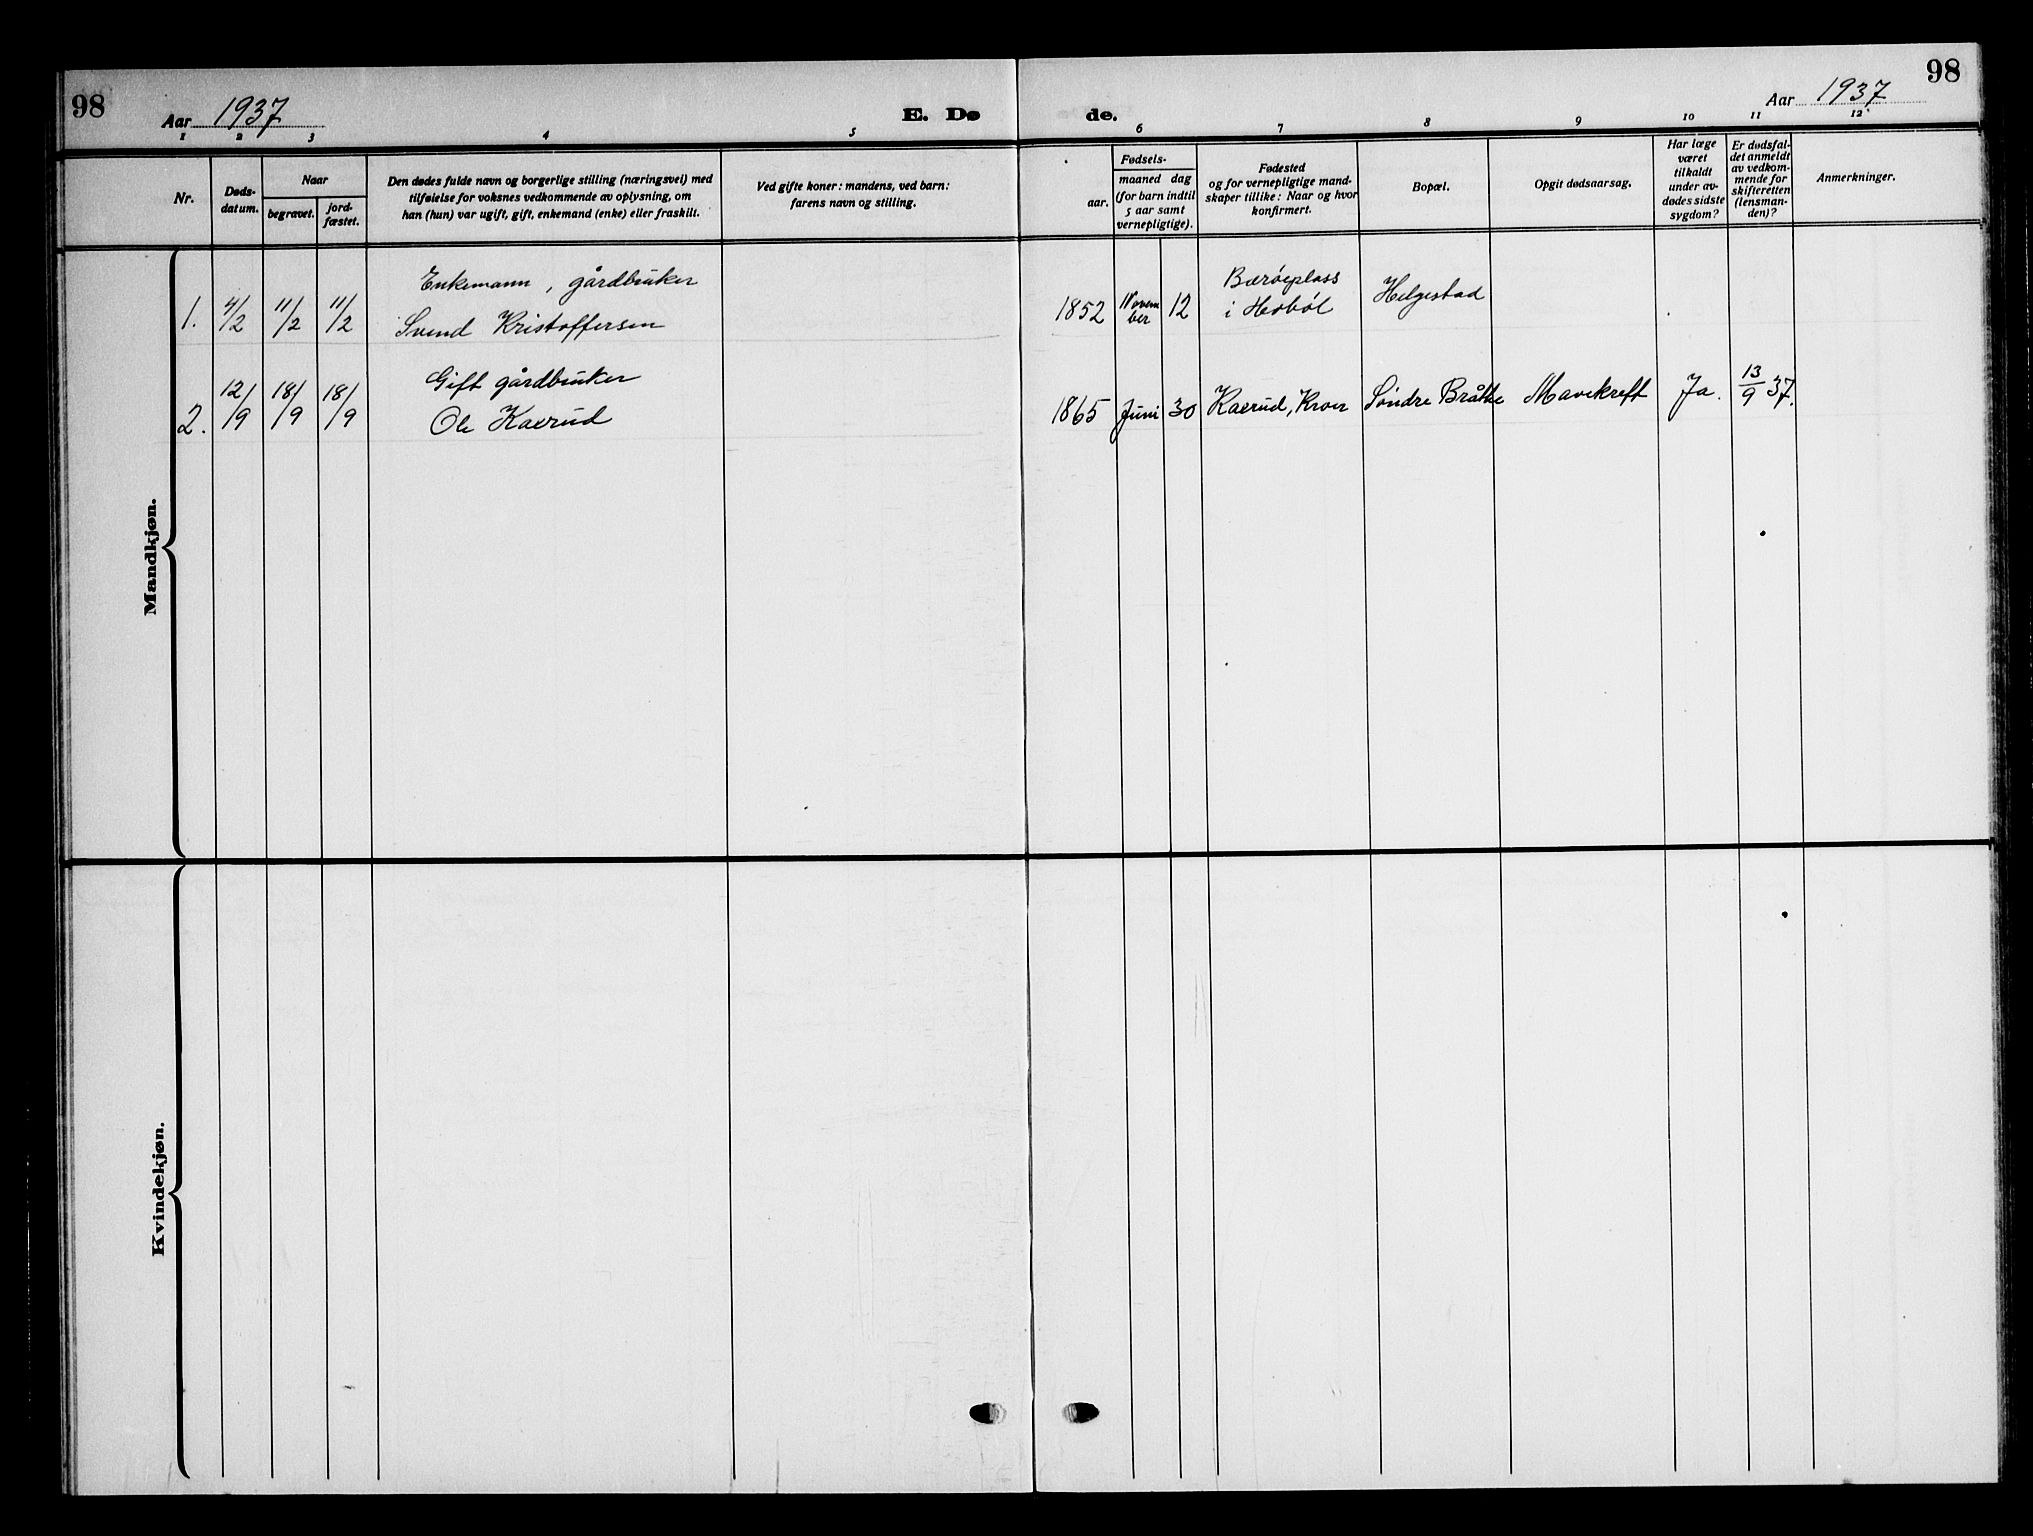 98
Aar 1937
E. Dø
de.
Aar 1937
98
1 2 3 4 5 6 7 8 9 10 11 12
Nr.
Døds-
datum.
Naar
begravet.
jord-
fæstet.
Den dødes fulde navn og borgerlige stilling (næringsvei) med
tilføielse for voksnes vedkommende av oplysning, om
han (hun) var ugift, gift, enkemand (enke) eller fraskilt.
Ved gifte koner: mandens, ved barn:
farens navn og stilling.
Fødsels-
aar.
maaned dag
(for barn indtil
5 aar samt
vernepligtige).
Fødested
og for vernepligtige mand-
skaper tillike: Naar og hvor
konfirmert.
Bopæl.
Opgit dødsaarsag.
Har læge
været
tilkaldt
under av-
dødes sidste
sygdom?
Er dødsfal-
det anmeldt
av vedkom-
mende for
skifteretten
(lensman-
den)?
Anmerkninger.
Mandkjøn.
Enkemann, gårdbruker
1. 4/2 11/2 11/2 Svend Kristoffersen
1852
Novem
ber
12
Bærøeplass
i Hobøl
Helgestad
Gift gårdbruker
2. 12/9 18/9 18/9 Ole Kaerud
1865 Juni 30 Kaerud, Kroer Søndre Bråtte Mavekreft Ja. 13/9 37.
Kvindekjøn.